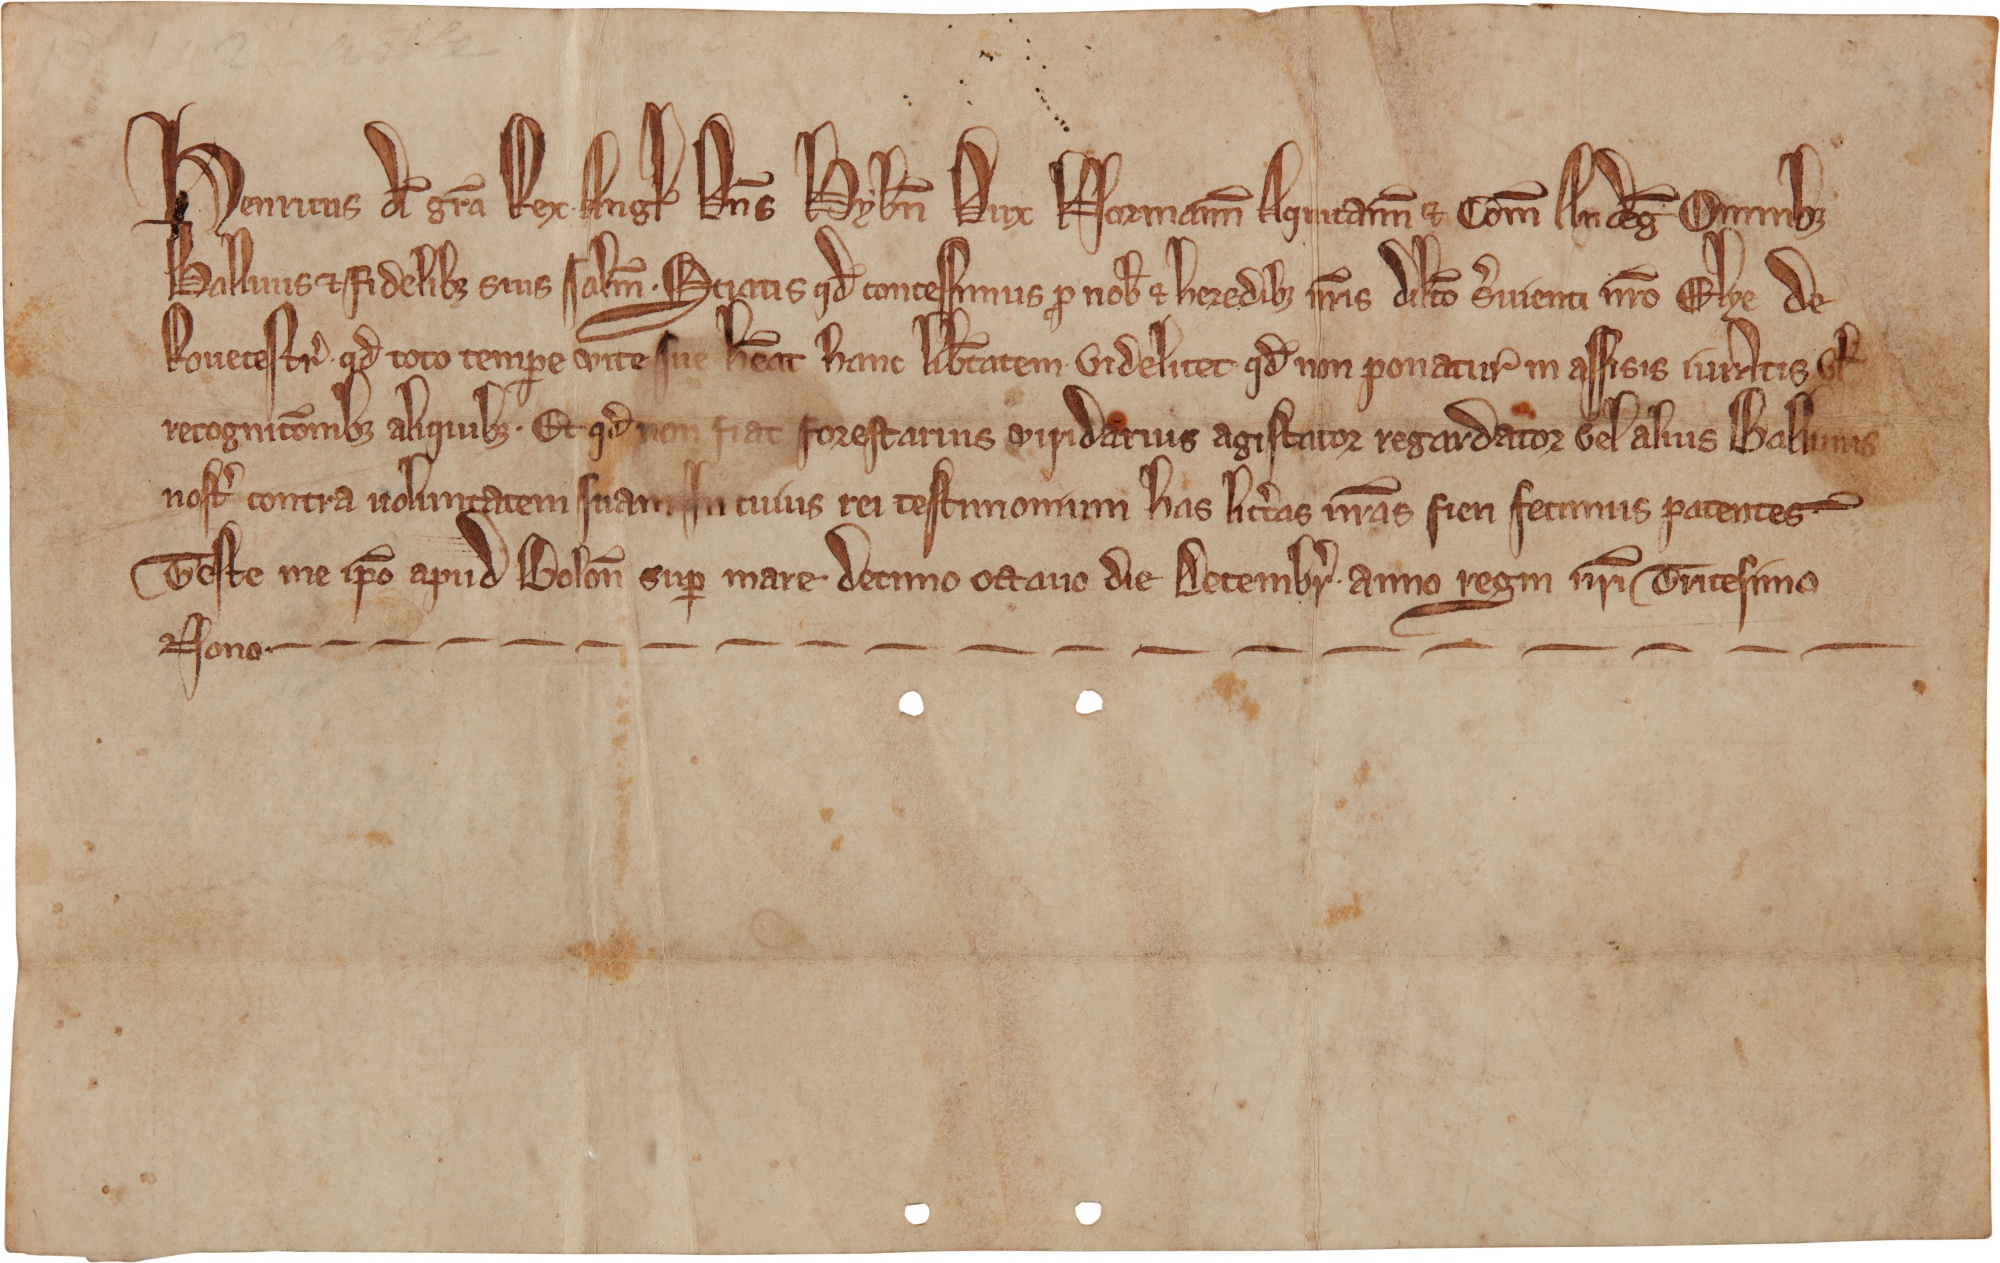 Henricus di gra Rex Angl Dns Hybn Dux Normann Aquitann & Com Andeg Omnibz
Ballivis & fidelibz suis saltm. Sciatis qd concessimus p nob & heredibz nris dilco Svienti nro Elye de
Rouecestr. qd toto tempe vite sue heat hanc libtatem videlicet qd non ponatur in assisis iuratis vl
recognicoibz aliquibz. Et qd non fiat forestarius viridarius agistator regardator vel alius Ballivus
nostr contra voluntatem suam In cuius rei testimonium has litras nras fieri fecimus patentes.
Teste me ipo apud Bolon sup mare decimo octavo die Decembr. anno regni nri Tricesimo
Nono.